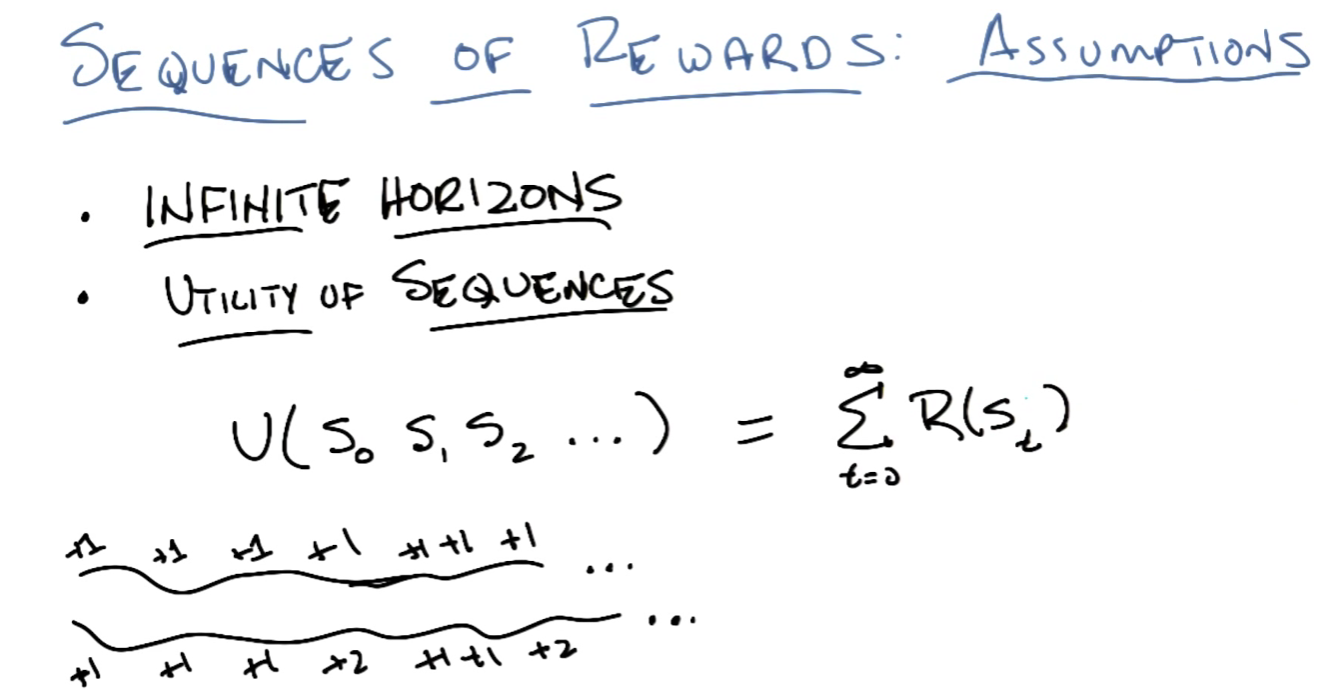 SEQUENCES OF REWARDS: ASSUMPTIONS
• INFINITE HORIZONS
• UTILITY OF SEQUENCES
U( S₀ S₁ S₂ ... ) = ∞ Σ t=0 R(Sₜ)
+1 +1 +1 +1 +1 +1 +1 ...
...
+1 +1 +1 +2 +1 +1 +2